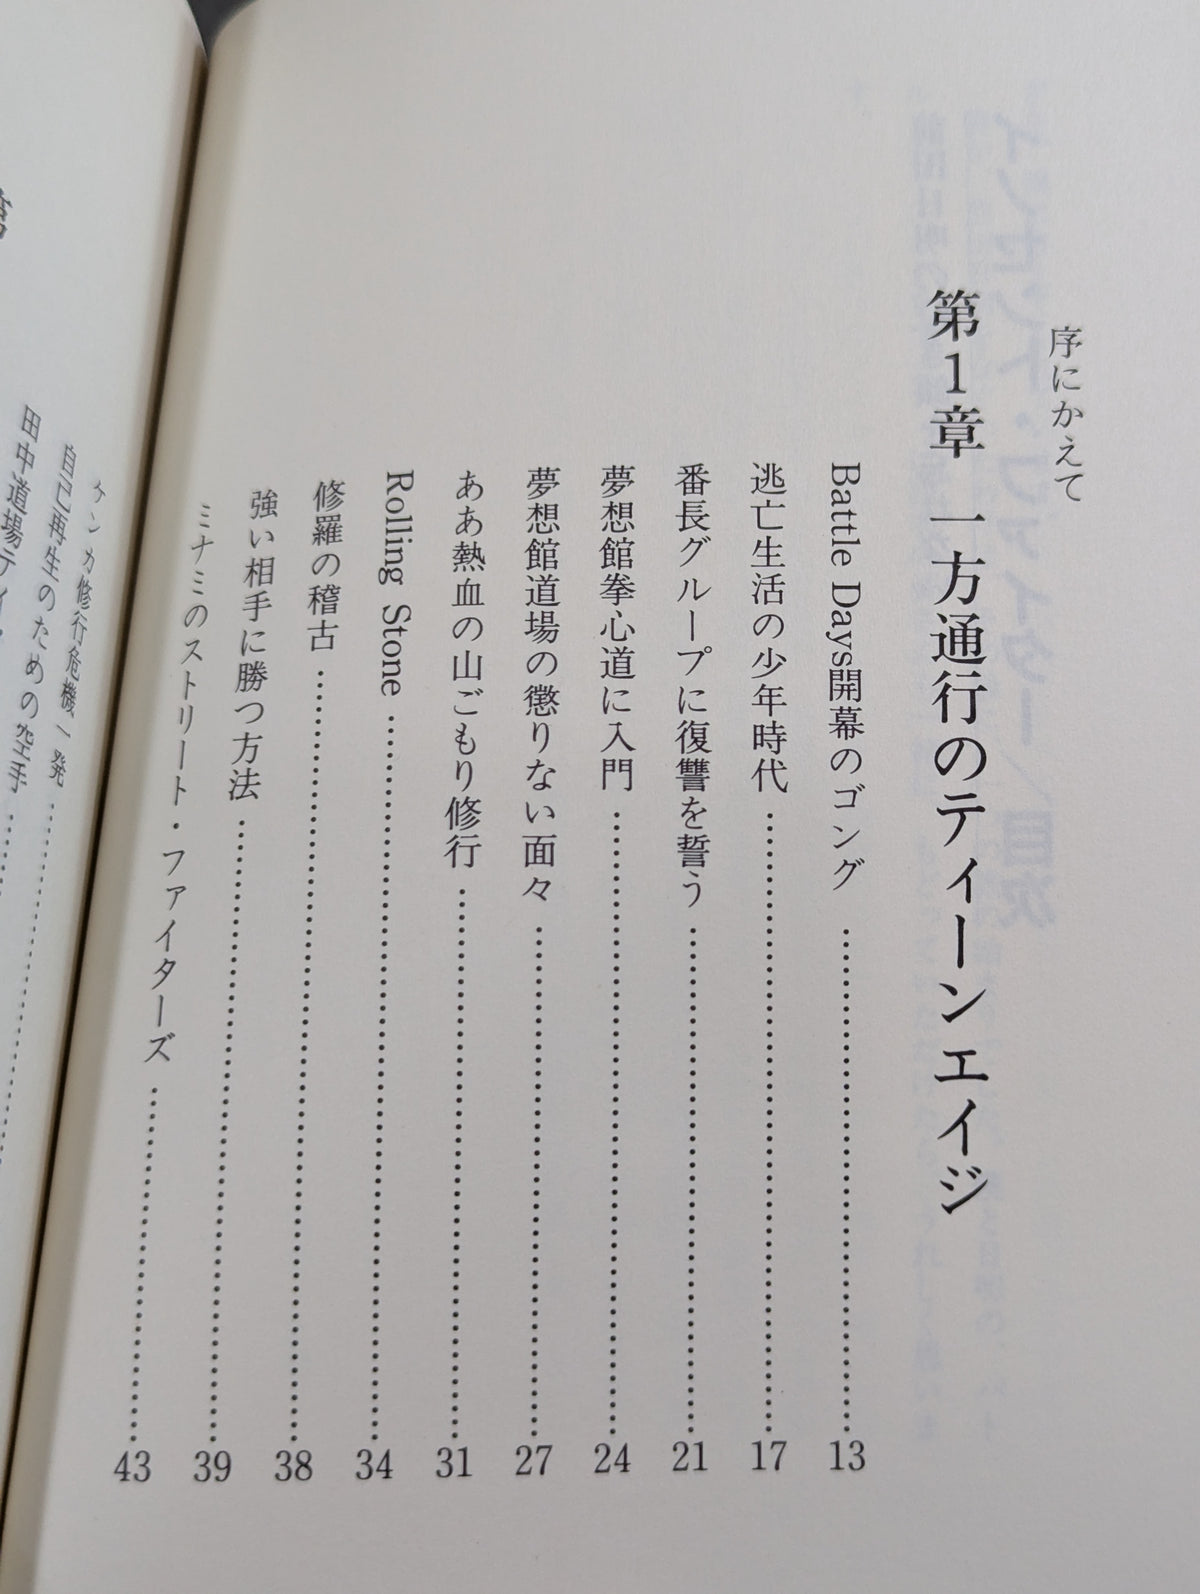 序にかえて
第1章 一方通行のティーンエイジ
Battle Days開幕のゴング 13
逃亡生活の少年時代 17
番長グループに復讐を誓う 21
夢想館拳心道に入門 24
夢想館道場の懲りない面々 27
ああ熱血の山ごもり修行 31
Rolling Stone 34
修羅の稽古 38
強い相手に勝つ方法 39
ミナミのストリート・ファイターズ 43
ケンカ修行危機一発
自己再生のための空手
田中道場